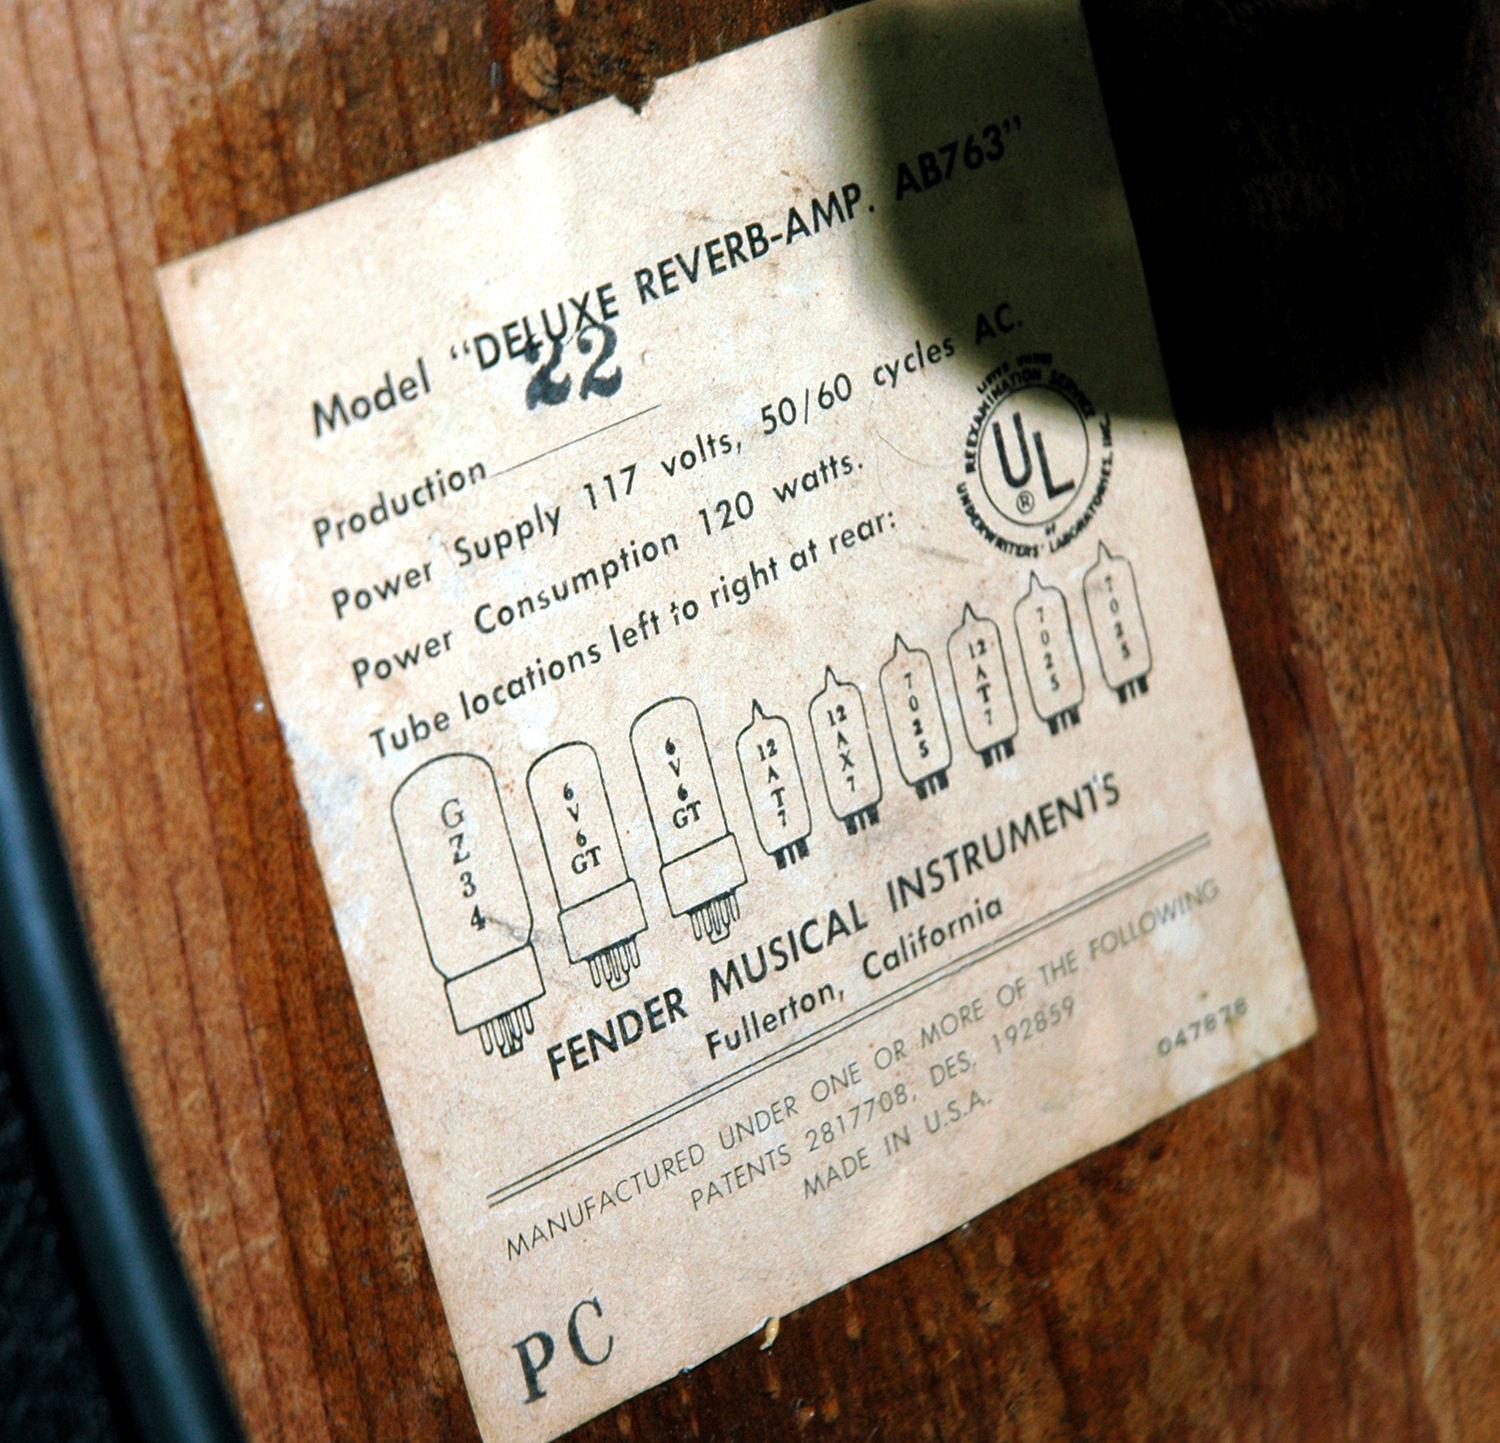 Model “DELUXE REVERB-AMP. AB763”
22
Production
Power Supply 117 volts, 50/60 cycles AC.
Power Consumption 120 watts.
Tube locations left to right at rear:
LISTED UNDER
REEXAMINATION SERVICE
UL
®
OF
UNDERWRITERS' LABORATORIES, INC.
GZ34
6V6GT
6V6GT
12AT7
12AX7
7025
12AT7
7025
7025
FENDER MUSICAL INSTRUMENTS
Fullerton, California
MANUFACTURED UNDER ONE OR MORE OF THE FOLLOWING
PATENTS 2817708, DES. 192859
MADE IN U.S.A.
047878
PC